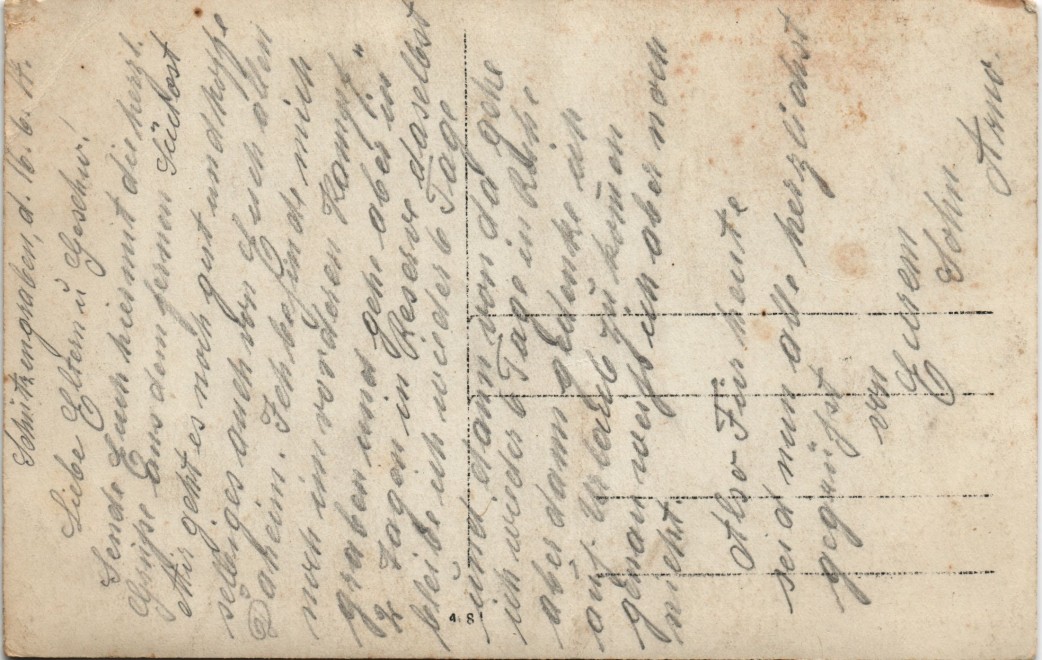 Schützengraben, d. 16. 6. 17.
Liebe Eltern u Geschw.!
Sende Euch hiermit die herzl.
Grüße aus dem fernen Südost
Mir geht es noch gut und hoffe
selbiges auch von Euch allen
Daheim. Ich befinde mich
noch im vorderen Kampf-
graben und gehe aber in
2 Tagen in Reserve daselbst
bleibe ich wieder 6 Tage
und dann von da gehe
ich wieder 6 Tage in Ruhe
aber dann gedenke ich
auf Urlaub zu kom̅en
genau weiß ich aber noch
nicht.
Also Für heute
seid nun alle herzlichst
gegrüßt
von
Eurem
Sohn
Arno.
481